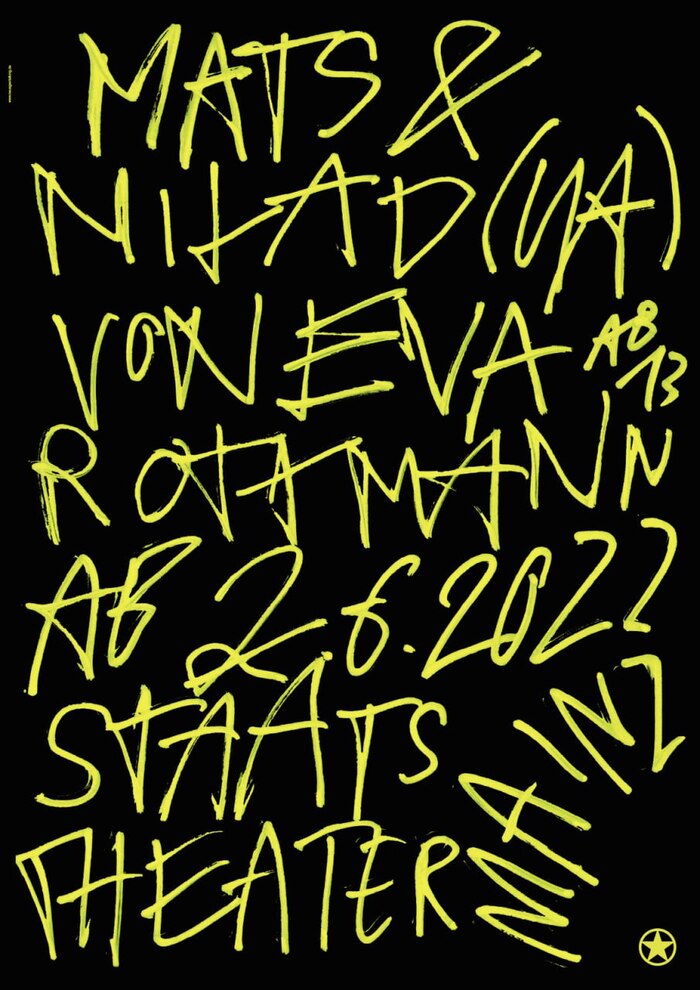 MATS &
MILAD (YA)
VON EVA
AB
13
ROTTMANN
AB 2.6.2022
STAATS
THEATER
MAINZ